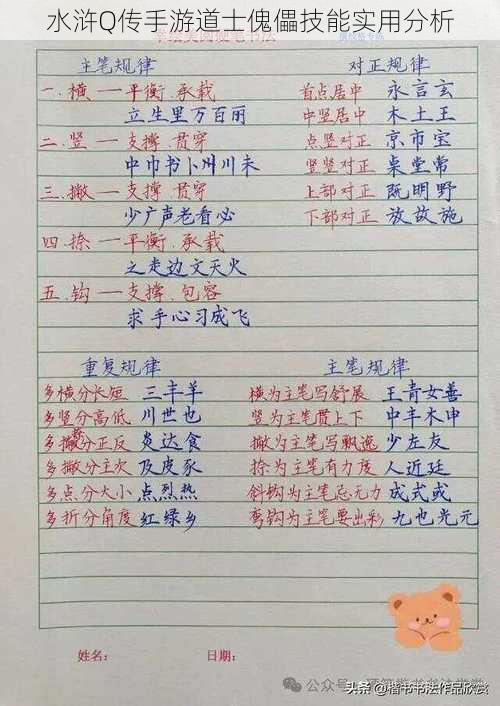 水浒Q传手游道士傀儡技能实用分析
主笔规律
一.横一平衡.承载
立生里万百丽
二.竖一支撑.贯穿
中巾书卜州川未
三.撇一支撑.贯穿
少广声老看必
四.捺一平衡.承载
之走边文天火
五.钩一支撑.包容
求手心习成飞
对正规律
首点居中 永言玄
中竖居中 木土王
点竖对正 京市宝
竖竖对正 桌堂常
上部对正 既明野
下部对正 放故施
重复规律
多横分长短 三丰羊
多竖分高低 川世也
多捺分正反 炎达食
多撇分主次 及皮豕
多点分大小 点烈热
多折分角度 红绿乡
主笔规律
横为主笔写舒展 王青女善
竖为主笔贯上下 中丰木申
撇为主笔写飘逸 少左友
捺为主笔有力度 人近廷
斜钩为主笔忌无力 成式或
弯钩为主笔要出彩 九也光元
姓名:
日期:
公众号
头条 @楷书书法作品欣赏